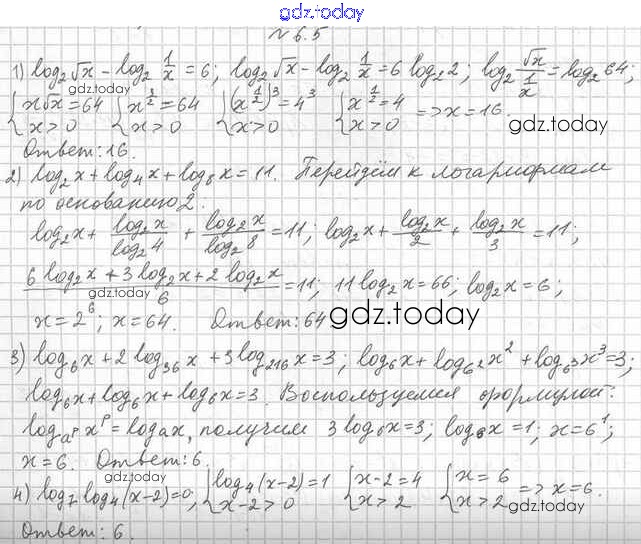 gdz.today
№ 6.5
1) log₂√x - log₂ 1/x = 6; log₂√x - log₂ 1/x = 6 log₂2; log₂ √x/(1/x) = log₂64;
gdz.today
{x√x = 64 {x^(3/2) = 64 {(x^(1/2))³ = 4³ {x^(1/2) = 4
{x > 0 {x > 0 {x > 0 {x > 0 => x = 16.
gdz.today
Ответ: 16.
2) log₂x + log₄x + log₈x = 11. Перейдём к логарифмам
по основанию 2.
log₂x + log₂x/log₂4 + log₂x/log₂8 = 11; log₂x + log₂x/2 + log₂x/3 = 11;
(6 log₂x + 3 log₂x + 2 log₂x)/6 = 11; 11 log₂x = 66; log₂x = 6;
gdz.today
x = 2⁶; x = 64. Ответ: 64
gdz.today
3) log₆x + 2 log₃₆x + 3 log₂₁₆x = 3; log₆x + log₆²x² + log₆³x³ = 3;
log₆x + log₆x + log₆x = 3. Воспользуемся формулой:
log_(a^p) x^p = logₐx, получим 3 log₆x = 3; log₆x = 1; x = 6¹;
x = 6. Ответ: 6.
4) log₇log₄(x-2) = 0; {log₄(x-2) = 1 {x-2 = 4 {x = 6
{x-2 > 0 {x > 2 {x > 2 => x = 6.
gdz.today
gdz.today
Ответ: 6.